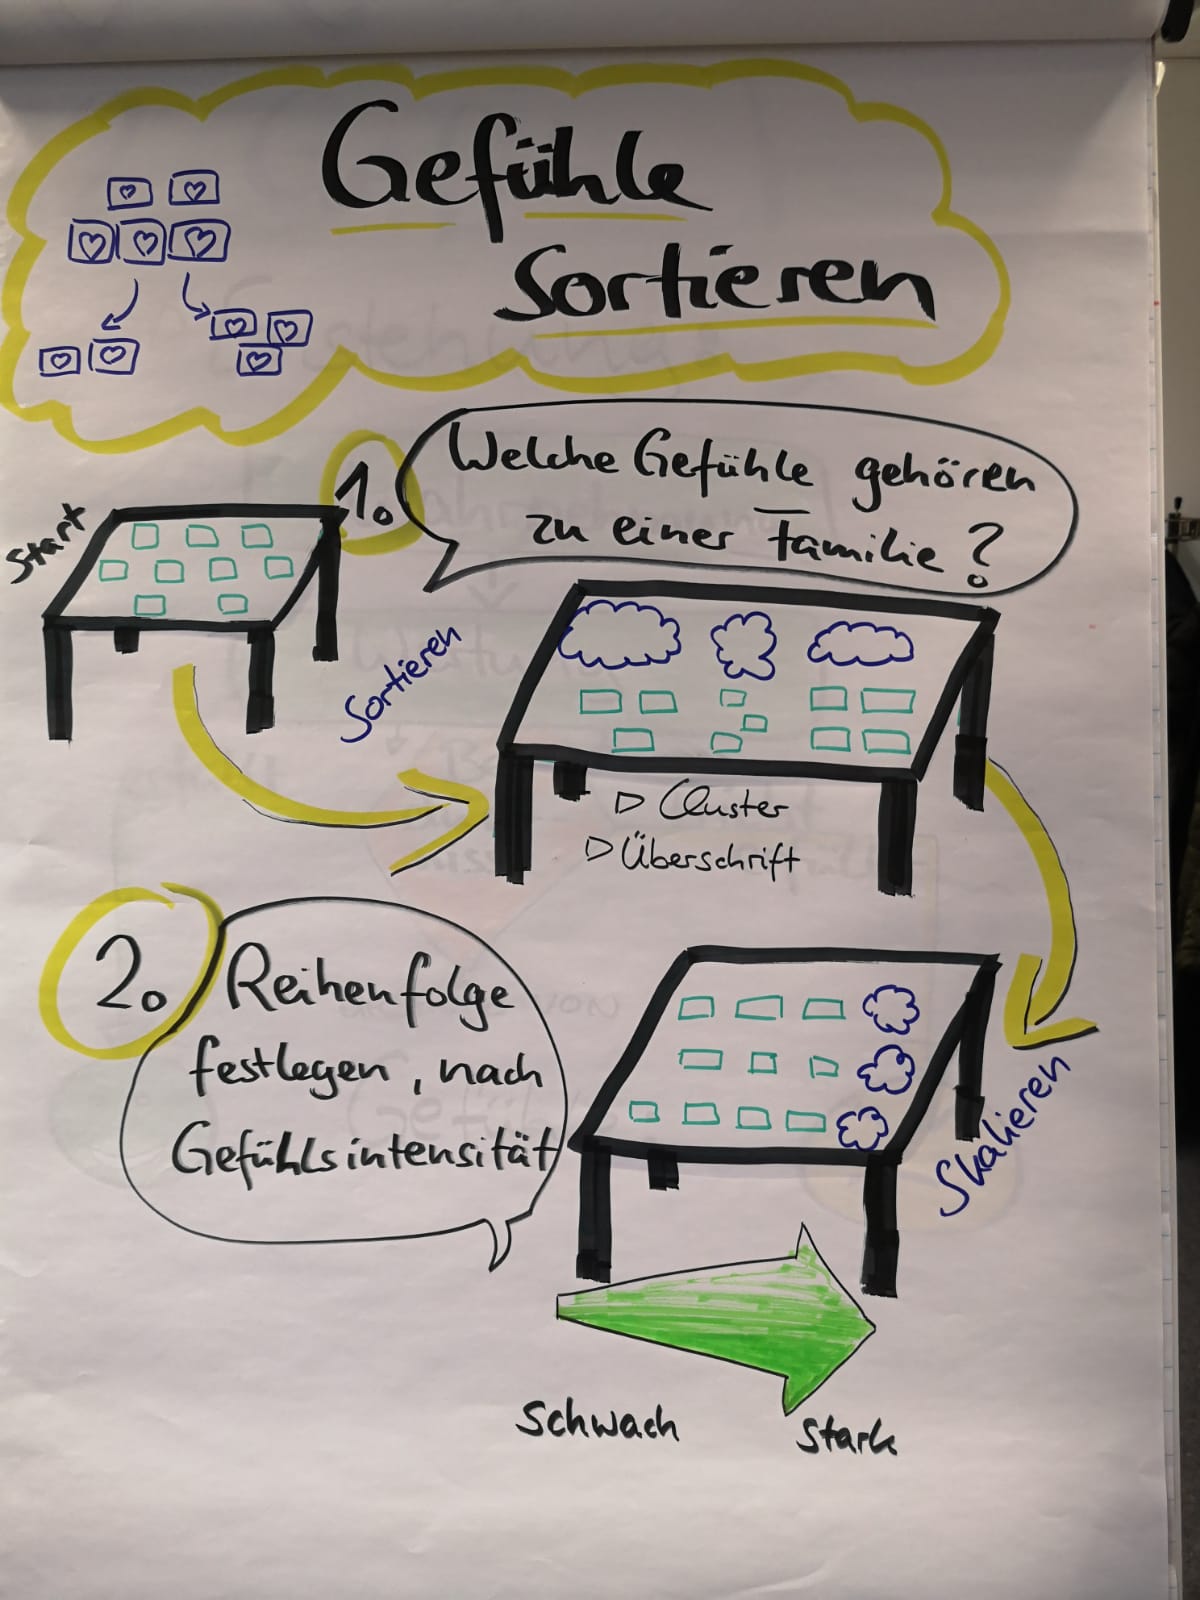 Gefühle
Sortieren
1.
Welche Gefühle gehören
zu einer Familie?
Start
Sortieren
▷ Cluster
▷ Überschrift
2.
Reihenfolge
festlegen, nach
Gefühlsintensität
Skalieren
Schwach
Stark